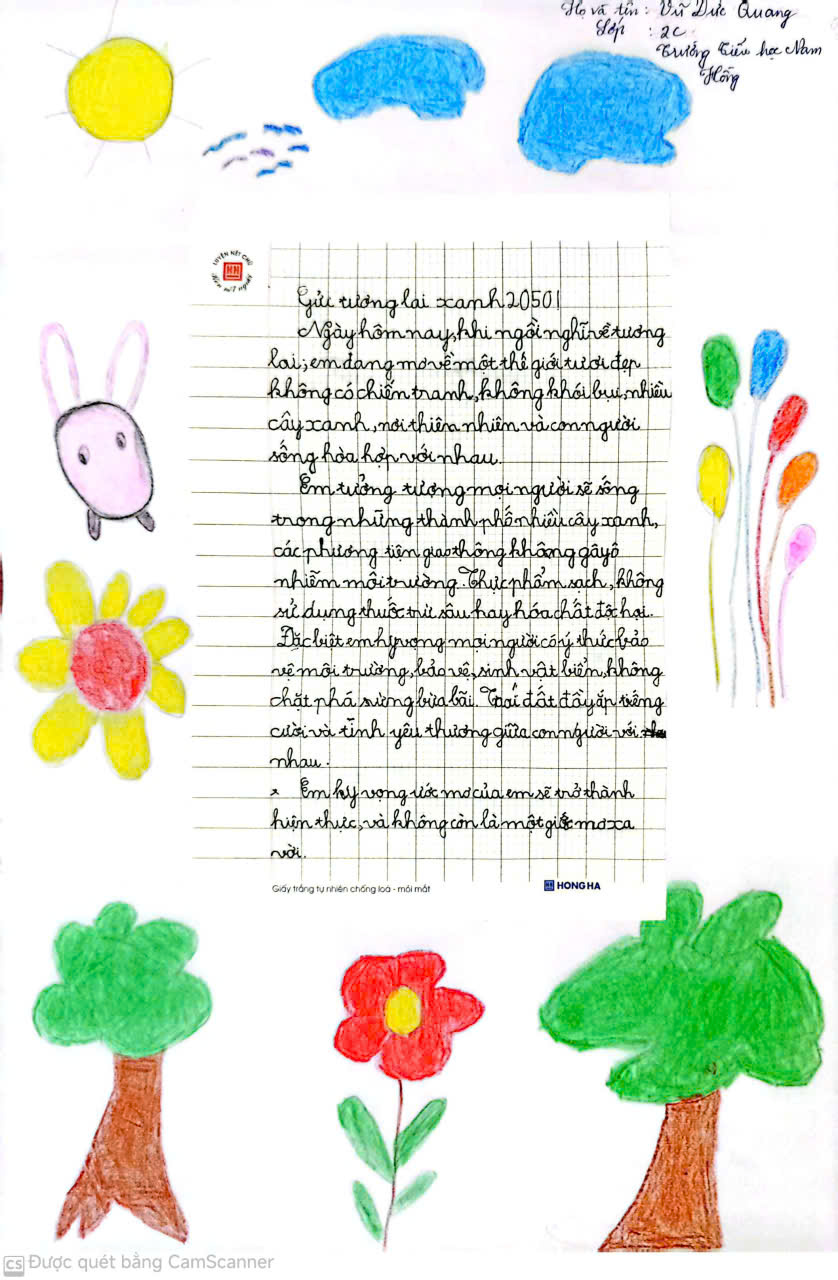 Họ và tên : Vũ Đức Quang
Lớp : 2C
Trường Tiểu học Nam
Hồng
LUYỆN NÉT CHỮ
Rèn nết người
HH
Gửi tương lai xanh 2050!
Ngày hôm nay, khi ngồi nghĩ về tương
lai, em đang mơ về một thế giới tươi đẹp
không có chiến tranh, không khói bụi, nhiều
cây xanh, nơi thiên nhiên và con người
sống hòa hợp với nhau.
Em tưởng tượng mọi người sẽ sống
trong những thành phố nhiều cây xanh,
các phương tiện giao thông không gây ô
nhiễm môi trường. Thực phẩm sạch, không
sử dụng thuốc trừ sâu hay hóa chất độc hại.
Đặc biệt em hy vọng mọi người có ý thức bảo
vệ môi trường, bảo vệ, sinh vật biển, không
chặt phá rừng bừa bãi. Trái đất đầy ắp tiếng
cười và tình yêu thương giữa con người với
nhau.
* Em hy vọng ước mơ của em sẽ trở thành
hiện thực, và không còn là một giấc mơ xa
vời.
Giấy trắng tự nhiên chống loá - mỏi mắt
HH HONG HA
CS Được quét bằng CamScanner